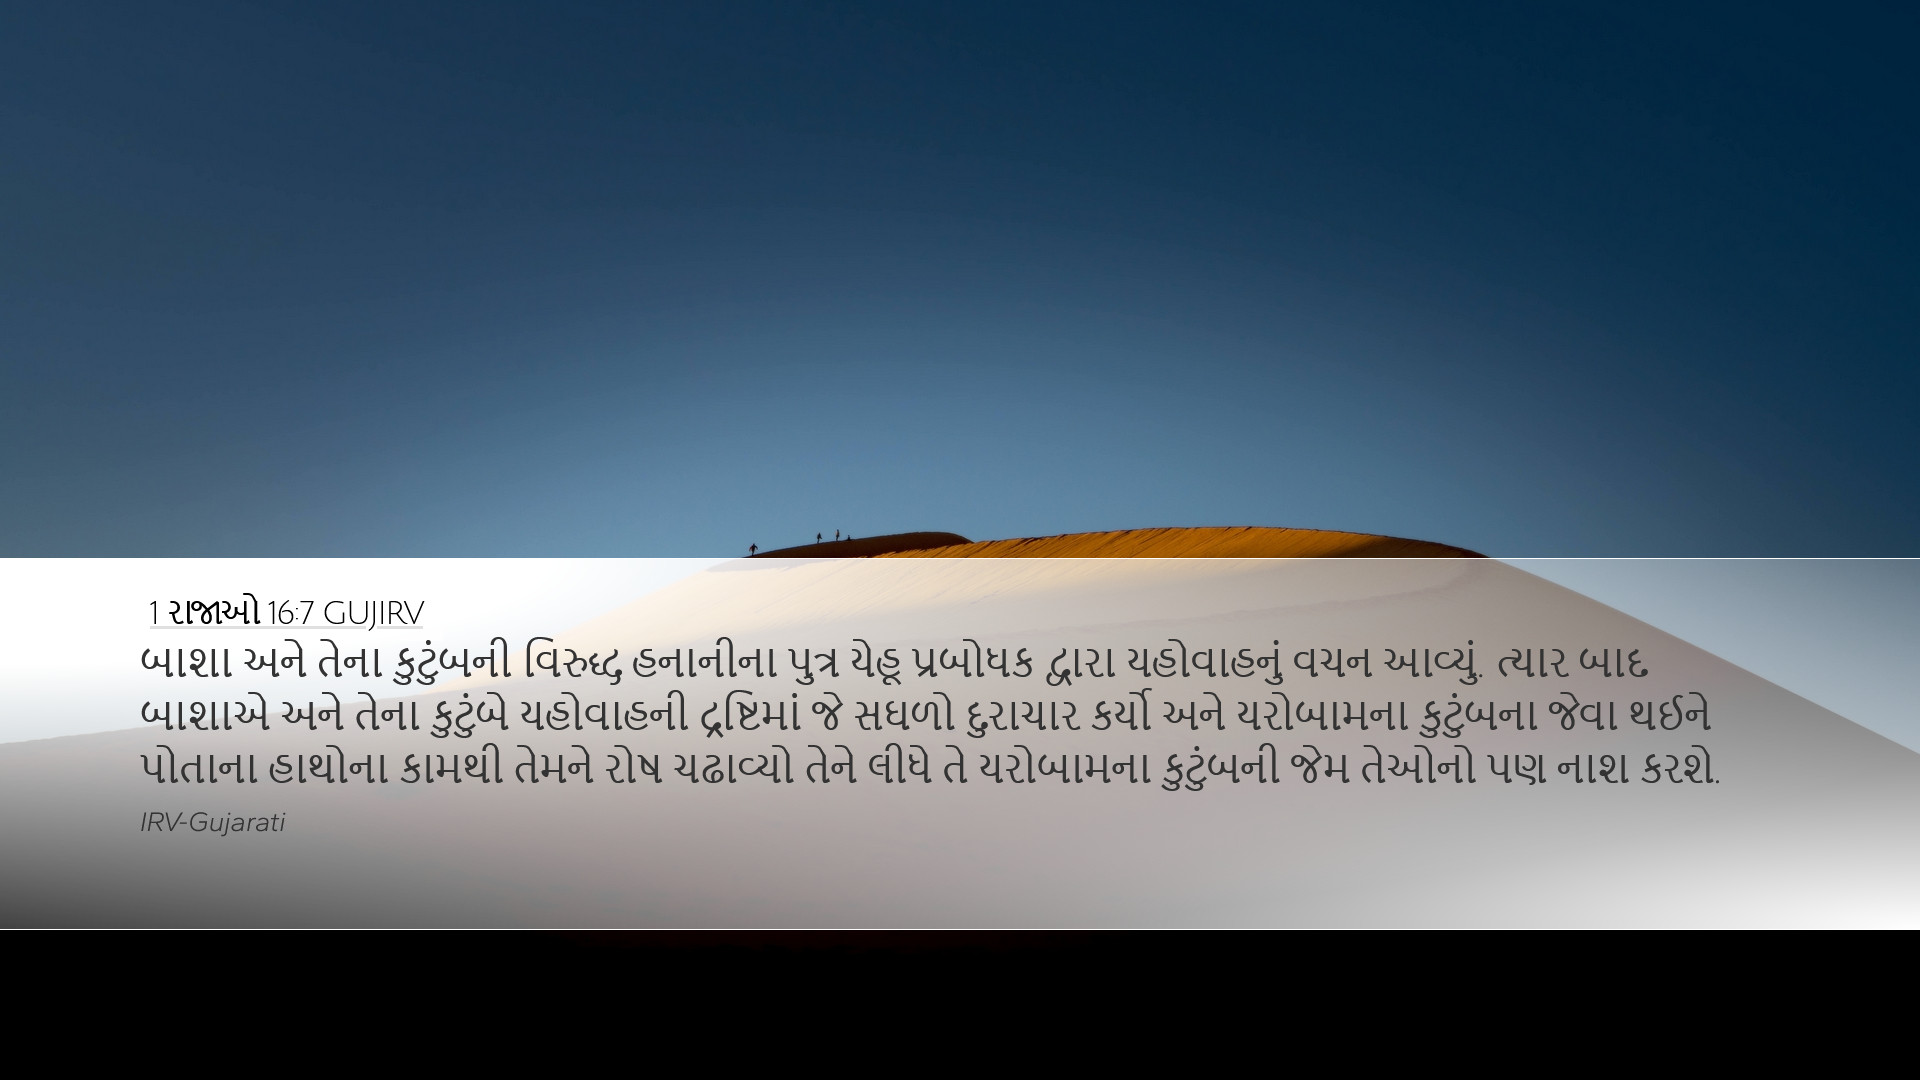 1 રાજાઓ 16:7 GUJIRV
બાશા અને તેના કુટુંબની વિરુદ્ધ હનાનીના પુત્ર યેહૂ પ્રબોધક દ્વારા યહોવાહનું વચન આવ્યું. ત્યાર બાદ
બાશાએ અને તેના કુટુંબે યહોવાહની દ્રષ્ટિમાં જે સઘળો દુરાચાર કર્યો અને યરોબામના કુટુંબના જેવા થઈને
પોતાના હાથોના કામથી તેમને રોષ ચઢાવ્યો તેને લીધે તે યરોબામના કુટુંબની જેમ તેઓનો પણ નાશ કરશે.
IRV-Gujarati